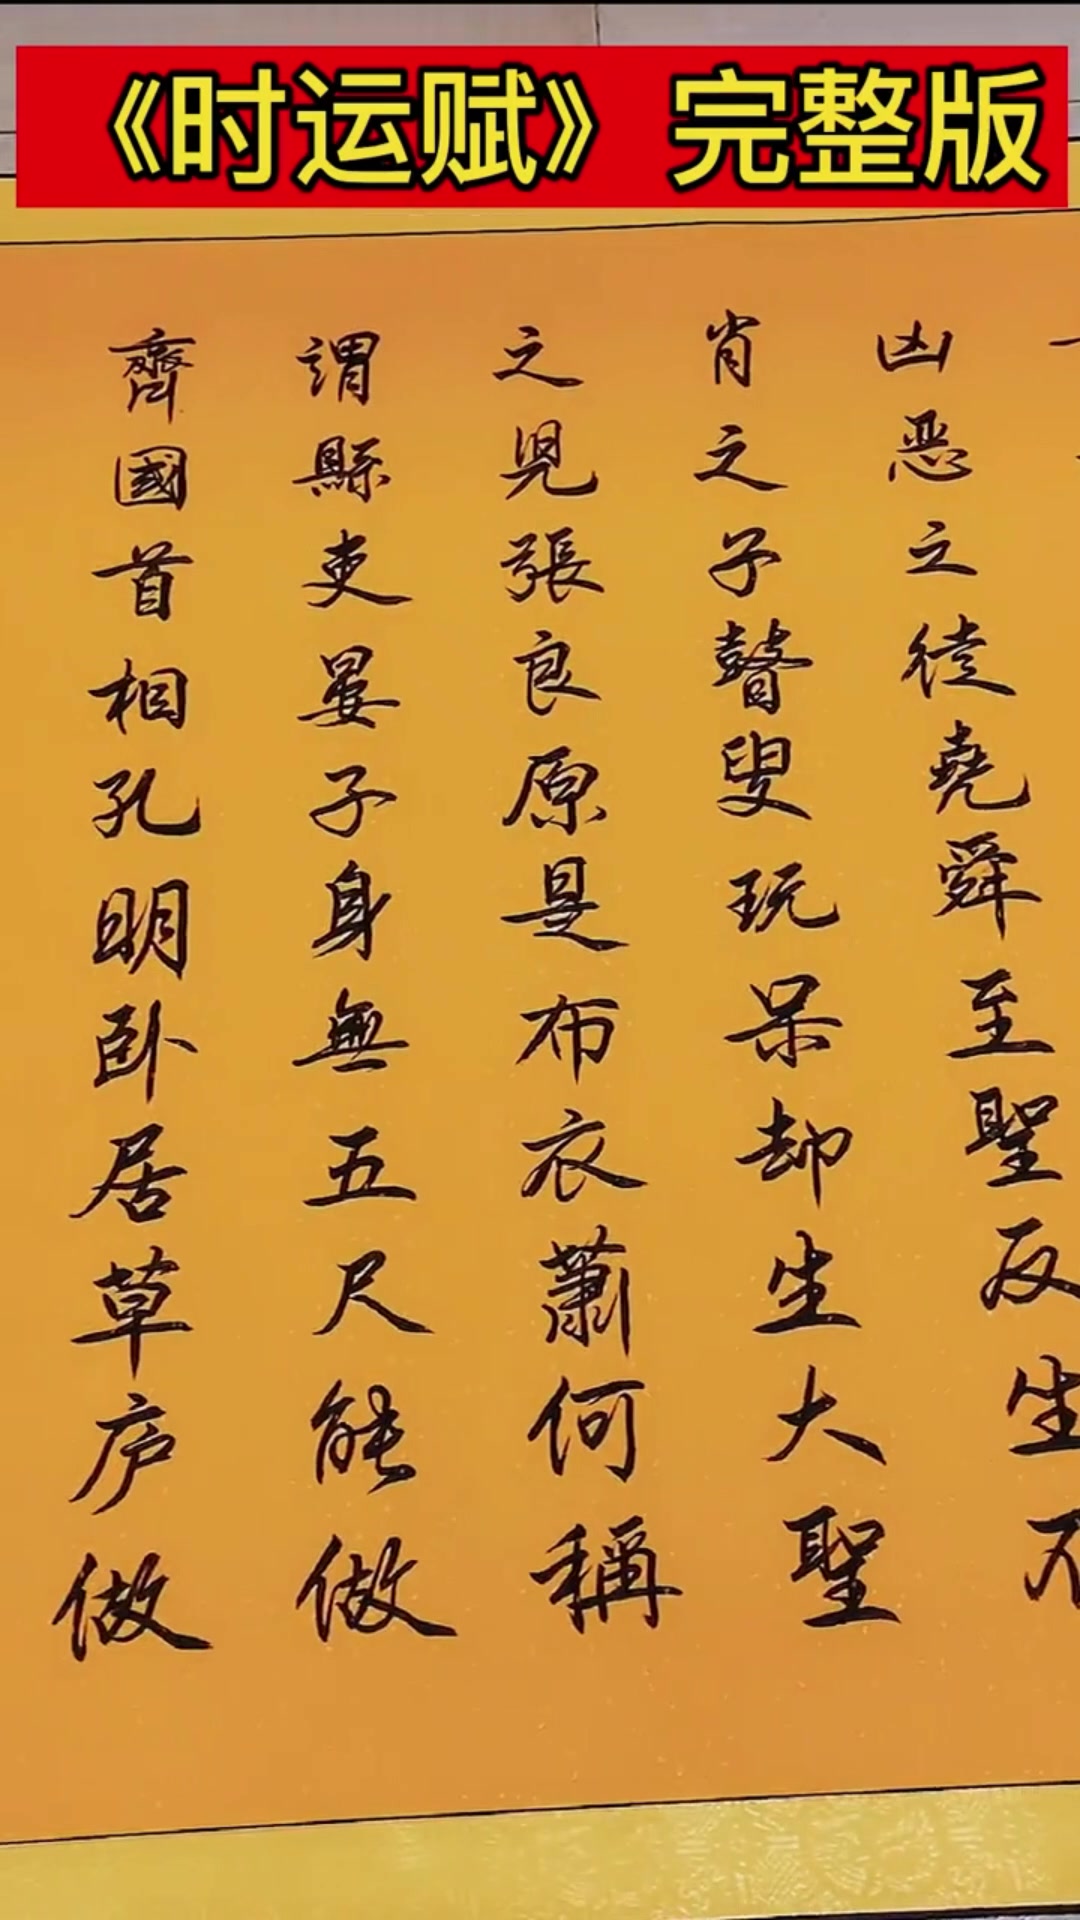 《时运赋》完整版
凶恶之徒堯舜至聖反生不
肖之子瞽叟玩呆却生大聖
之兒張良原是布衣蕭何稱
謂縣吏晏子身無五尺能做
齊國首相孔明卧居草庐做